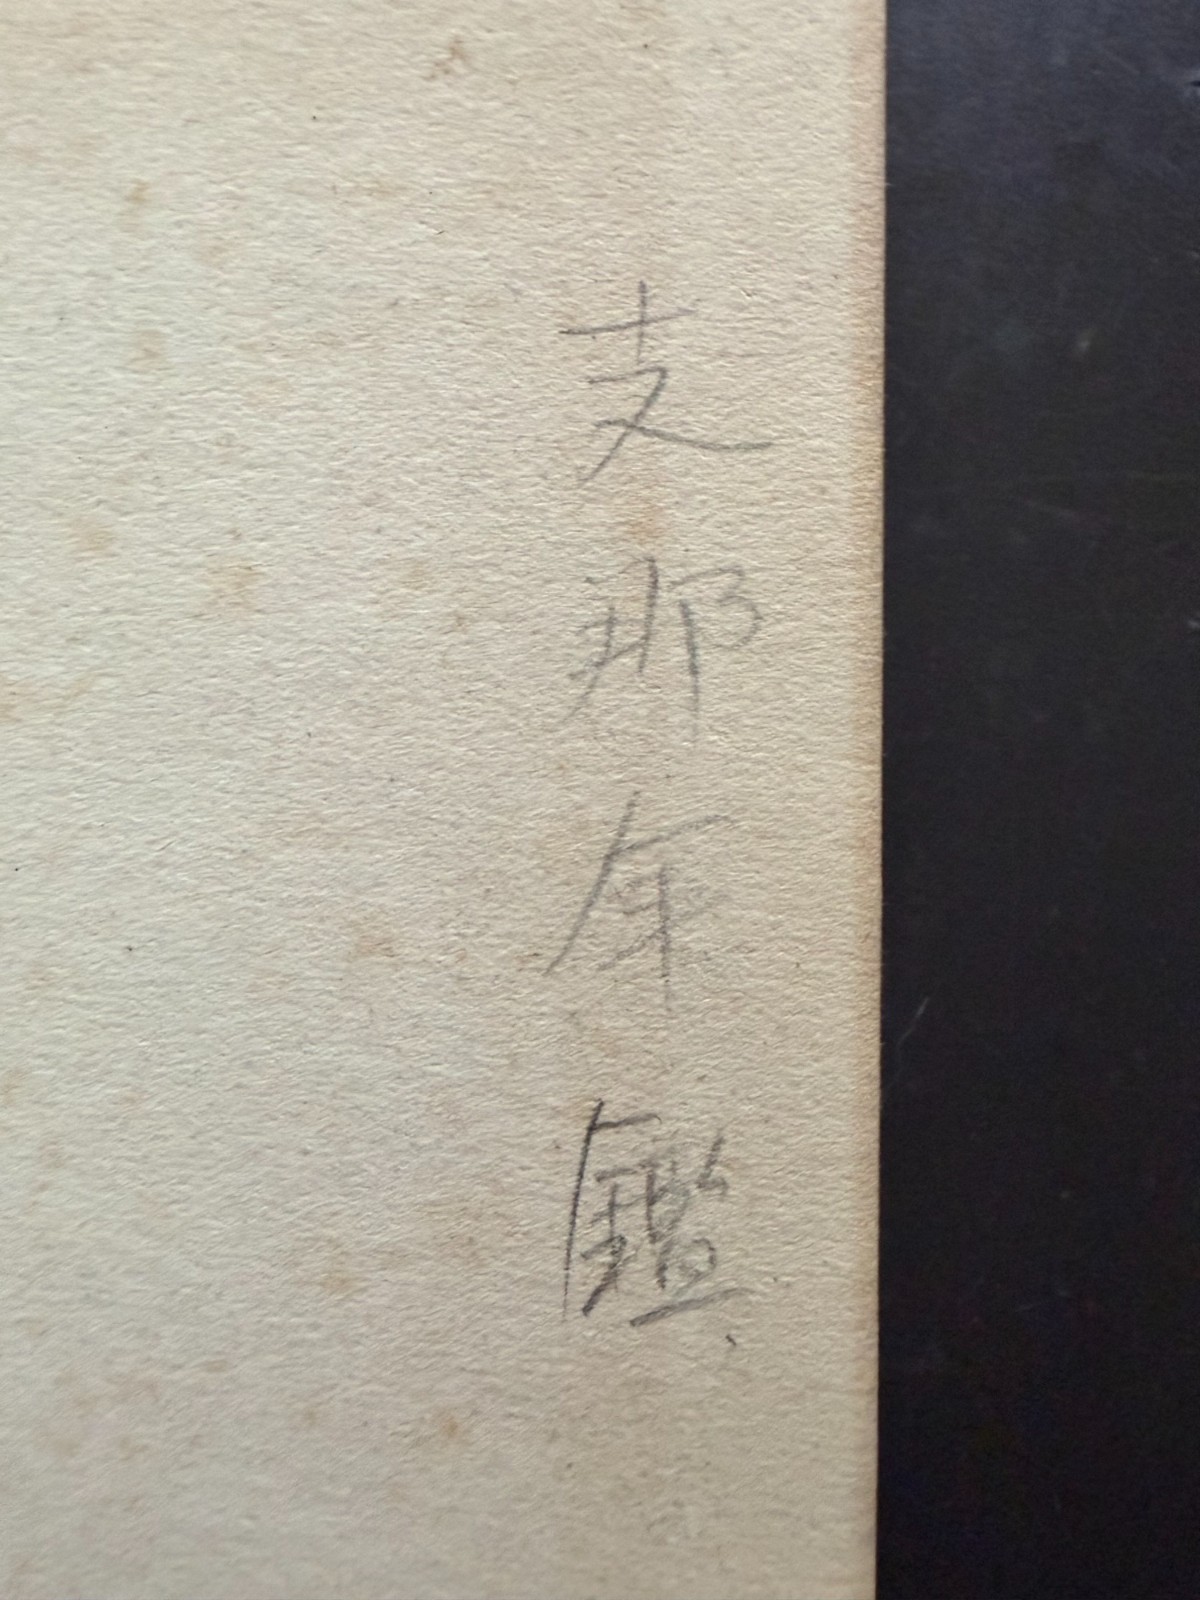 支那年鑑